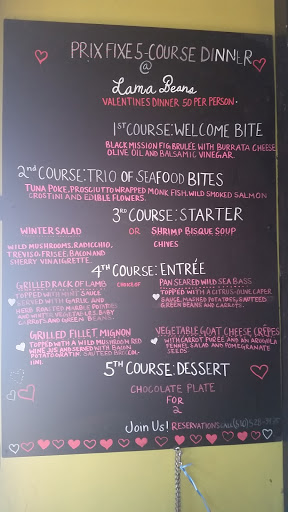 PRIX FIXE 5-COURSE DINNER
@
Lama Beans
VALENTINES DINNER 50 PER PERSON.
1ST COURSE: WELCOME BITE
BLACK MISSION FIG BRULÉE WITH BURRATA CHEESE
OLIVE OIL AND BALSAMIC VINEGAR.
2nd COURSE: TRIO OF SEAFOOD BITES
TUNA POKE, PROSCIUTTO WRAPPED MONK FISH, WILD SMOKED SALMON
CROSTINI AND EDIBLE FLOWERS.
3RD COURSE: STARTER
WINTER SALAD OR SHRIMP BISQUE SOUP
WILD MUSHROOMS, RADICCHIO, CHIVES
TREVISO, FRISEE, BACON AND
SHERRY VINAIGRETTE.
4TH COURSE: ENTRÉE
GRILLED RACK OF LAMB CHOICE OF
TOPPED WITH MINT SAUCE
SERVED WITH GARLIC AND
HERB ROASTED MARBLE POTATOES
AND WINTER VEGETABLES, BABY
CARROTS, AND GREEN BEANS.
PAN SEARED WILD SEA BASS
TOPPED WITH A CITRUS-WINE CAPER
SAUCE, MASHED POTATOES, SAUTEED
GREEN BEANS AND CARROTS.
GRILLED FILLET MIGNON
TOPPED WITH A WILD MUSHROOM RED
WINE JUS AND SERVED WITH BACON
POTATO GRATIN, SAUTEED BROCCOLINI.
VEGETABLE GOAT CHEESE CRÊPES
WITH CARROT PURÉE AND AN ARUGULA
FENNEL SALAD AND POMEGRANATE
SEEDS.
5TH COURSE: DESSERT
CHOCOLATE PLATE
FOR
2
JOIN US! RESERVATIONS